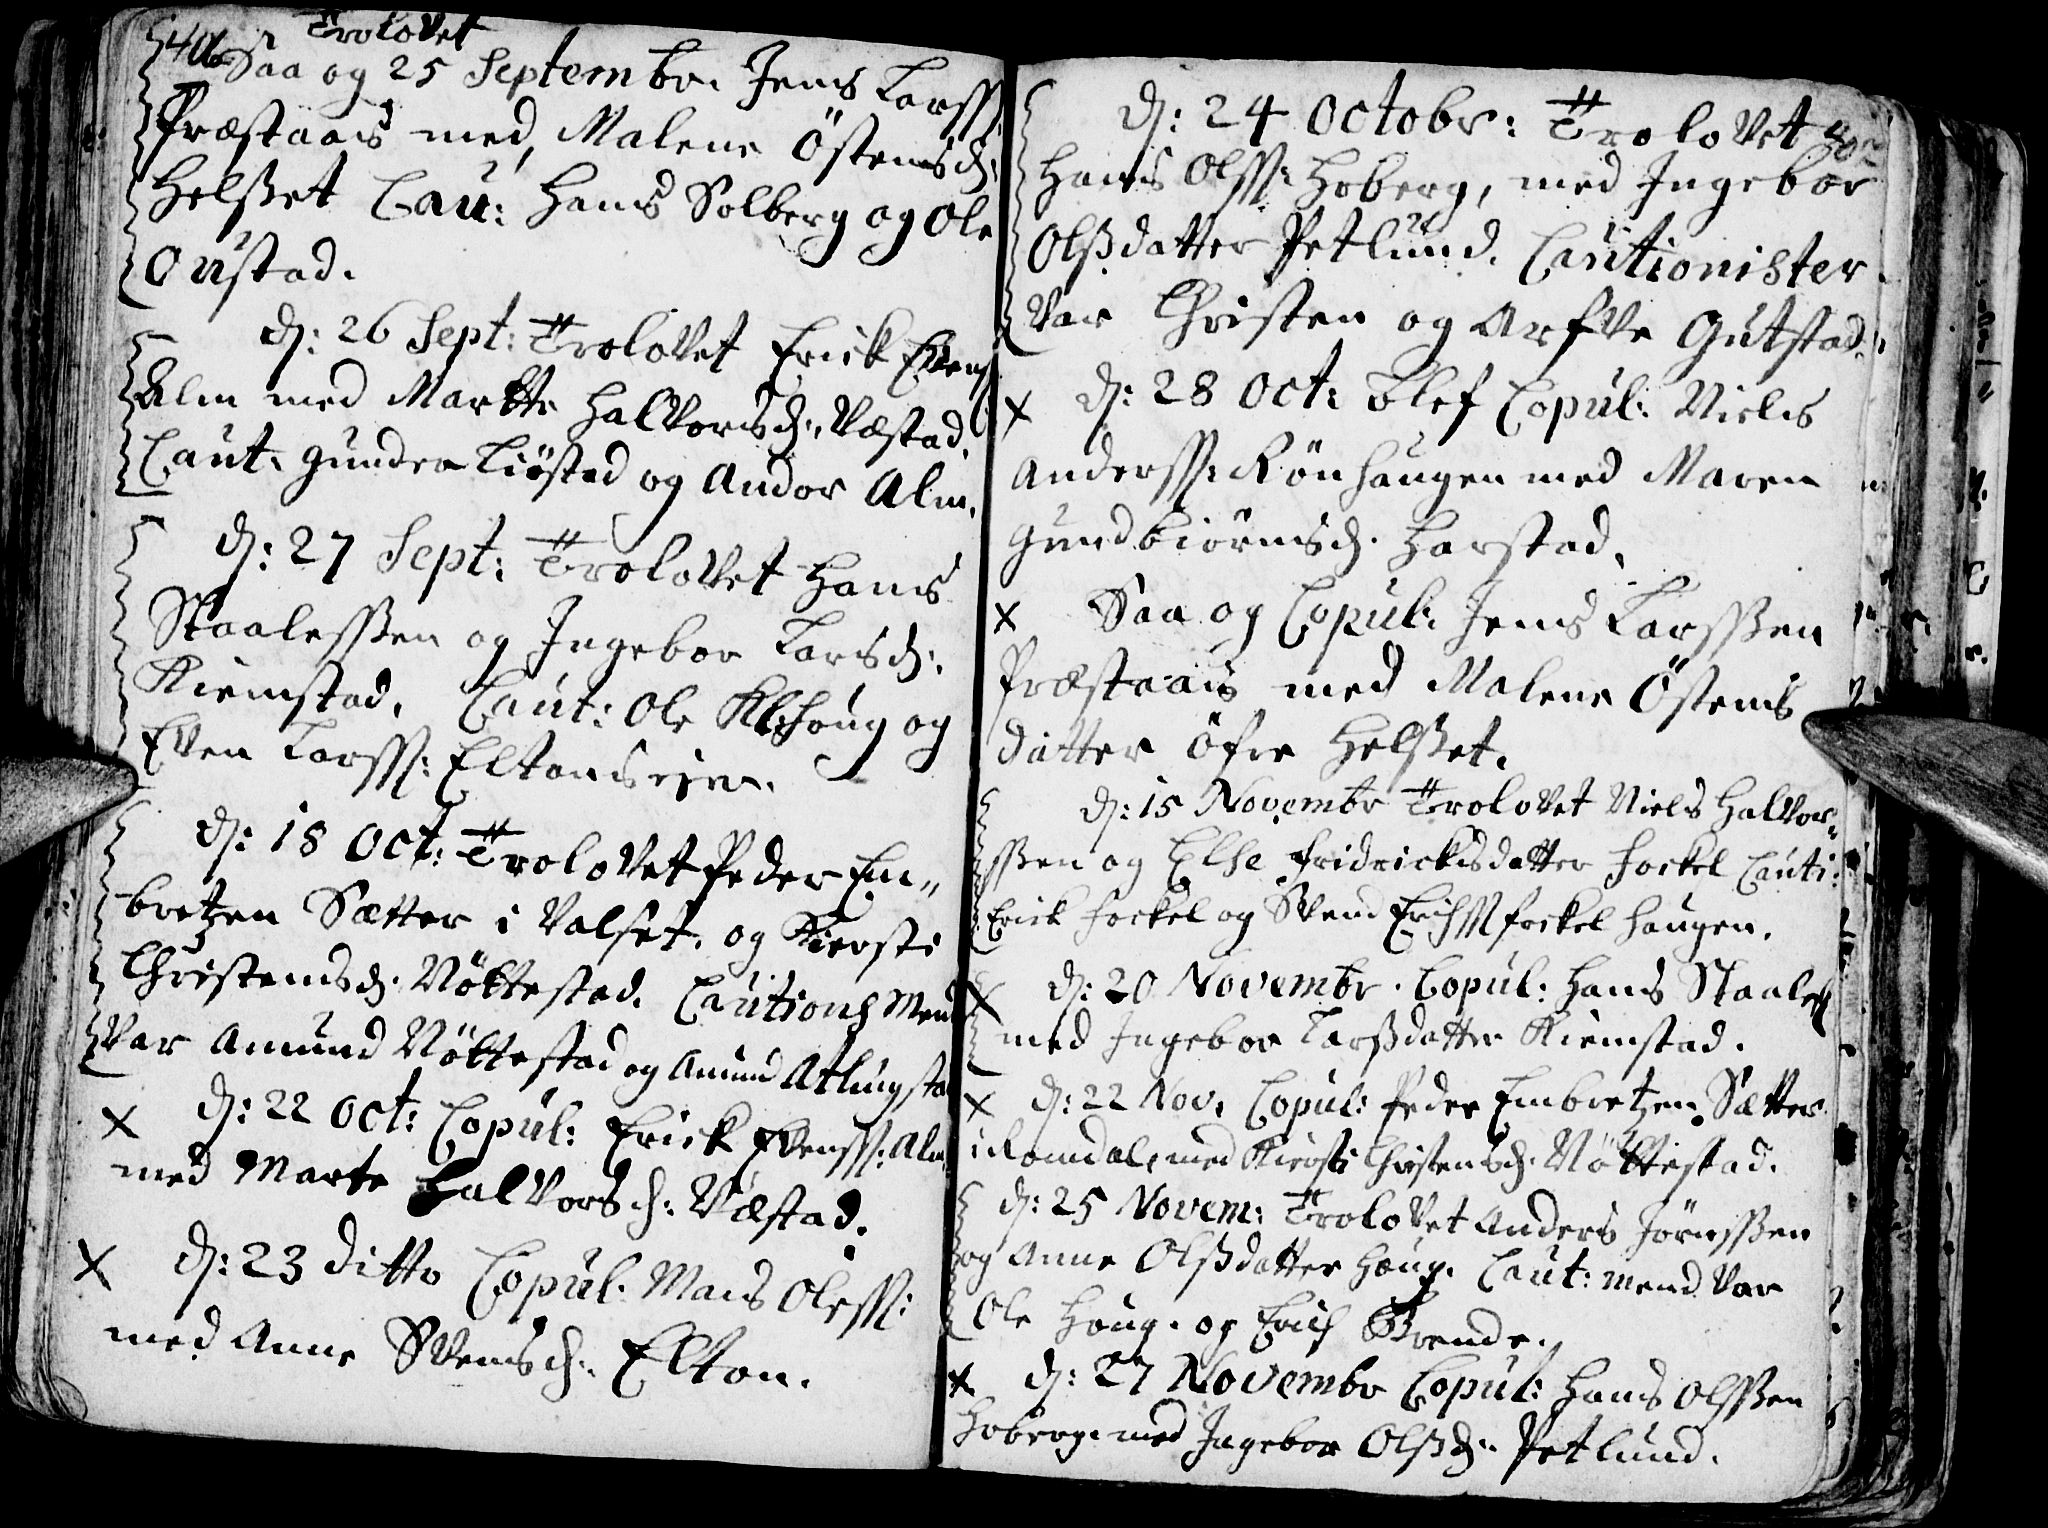 40
Trolovet
Saa og 25 Septembr. Jens Larss:
Præstaais med, Malene Östensd:
Helsset Cau: Hans Solberg og Ole
Oustad.
d: 26 Sept: Trolovet Erick Evens
Alm med Marthe Halvorsd: Væstad.
Caut. Gunder Liöstad og Andor Alm.
d: 27 Sept: Trolovet Hans
Staalessen og Ingebor Larsd:
Kiemstad. Caut: Ole Klohoug og
Even Larss: Eltonseien.
d: 18 Oct: Trolovet Peder Em„
bretzen Sætter i Valset. og Kiersti
Christensd: Nöttestad. Cautions Mend
var Amund Nöttestad og Amund Atlungstad
x d: 22 Oct: Copul: Erick Evenss: Alm
med Marte Halvorsd: Væstad.
x d: 23 ditto Copul. Mads Oless:
med Anne Svensd: Elton.
d: 24 Octobr: Trolovet
Hans Olss: Hoberg, med Ingebor
Olssdatter Petlund. Cautionister.
var Christen og Arfve Gutstad.
x d: 28 Oct: blef Copul: Niels
Anderss: Rönhaugen med Maren
Gundbiörnsd. Harstad.
x Saa og Copul: Jens Larssen
Præstaais med Malene Östens
datter Öfre Helsset.
d: 15 Novembr Trolovet Niels Halvor„
ssen og Else Fridrichsdatter Fockel Cauti:
Erick Fockel og Svend Erichss Fockelhaugen.
x d: 20 Novembr. Copul: Hans Staaless
med Ingebor Larssdatter Kiemstad.
x d: 22 Nov. Copul: Peder Embretzen Sætter
i Romdal, med Kiersti Christensd. Nöttestad.
d: 25 Novem: Trolovet Anders Jörnssen
og Anne Olssdatter Houg. Caut: mend var
Ole Houg. og Erich Brende.
x d: 27 Novembr Copul: Hans Olssen
Hoberg. med Ingebor Olssd: Petlund.